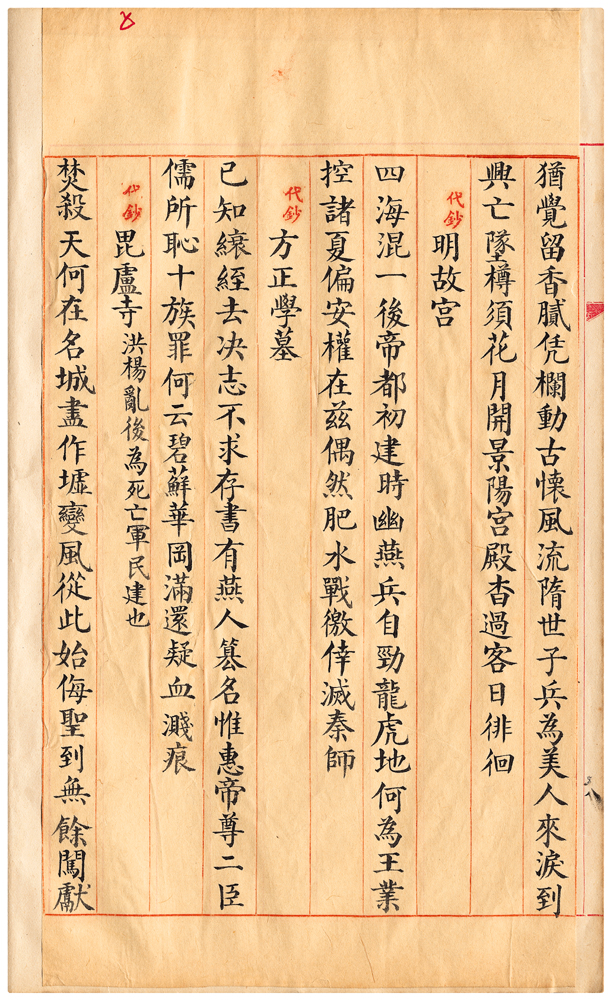 猶覺留香膩凭欄動古懷風流隋世子兵為美人來淚到
興亡墜樽須花月開景陽宮殿杳過客日徘徊
代鈔 明故宮
四海混一後帝都初建時幽燕兵自勁龍虎地何為王業
控諸夏偏安權在茲偶然肥水戰徼倖滅秦師
代鈔 方正學墓
已知縗絰去决志不求存書有燕人篡名惟惠帝尊二臣
儒所恥十族罪何云碧蘚華岡滿還疑血濺痕
代鈔 毘盧寺 洪楊亂後為死亡軍民建也
焚殺天何在名城盡作墟變風從此始侮聖到無餘闖獻